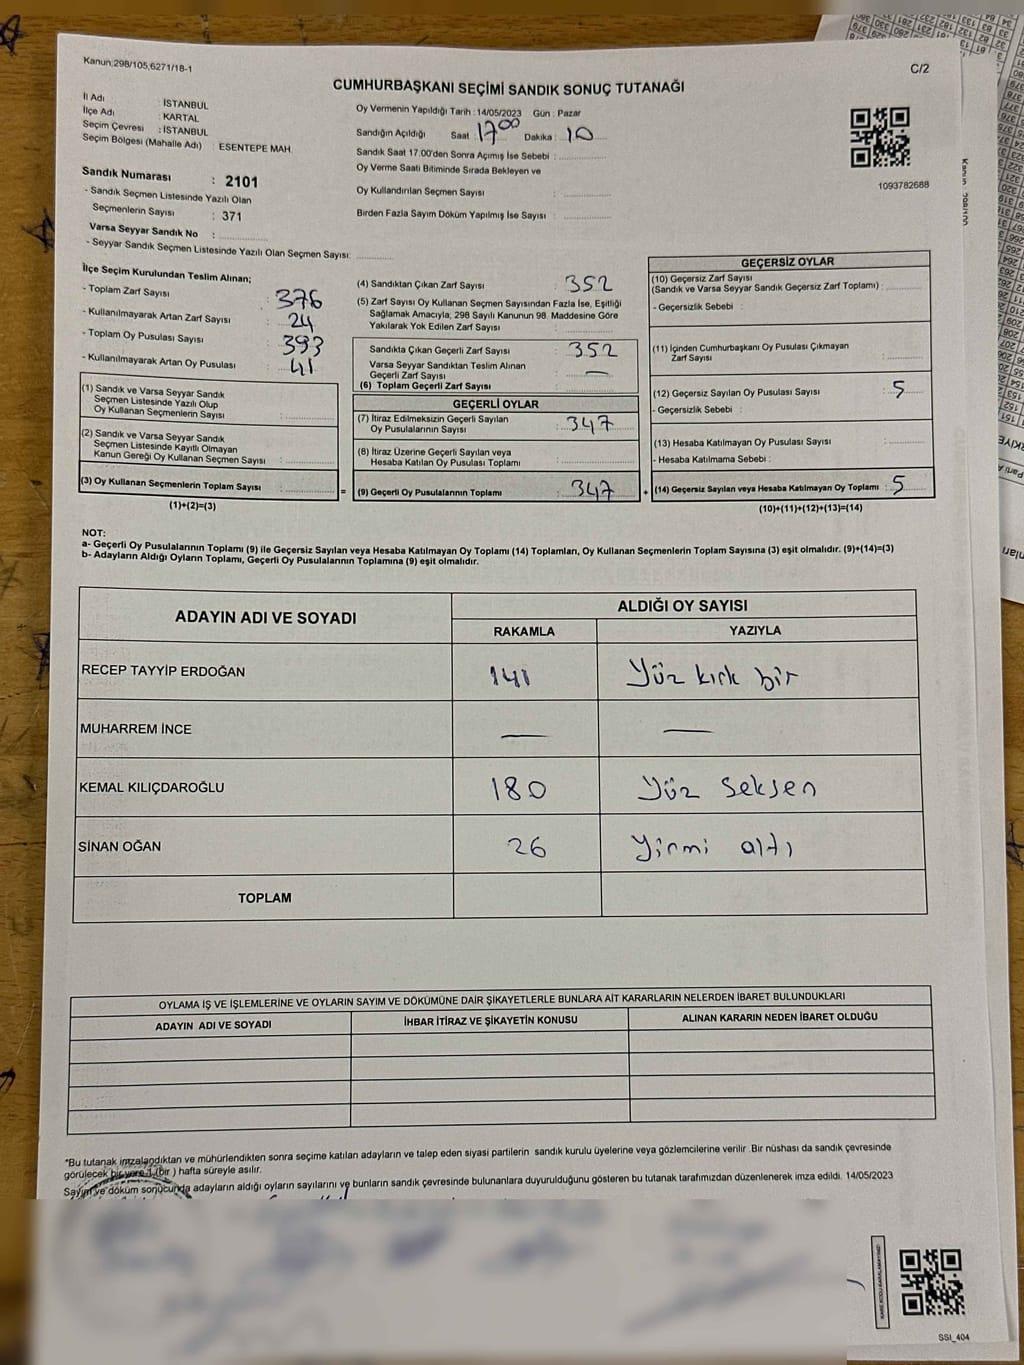 Kanun;298/105,6271/18-1
C/2
CUMHURBAŞKANI SEÇİMİ SANDIK SONUÇ TUTANAĞI
İl Adı : İSTANBUL
İlçe Adı : KARTAL
Seçim Çevresi : İSTANBUL
Seçim Bölgesi (Mahalle Adı) : ESENTEPE MAH.
Oy Vermenin Yapıldığı Tarih : 14/05/2023 Gün : Pazar
Sandığın Açıldığı Saat : 17 00 Dakika : 10
Sandık Saat 17.00'den Sonra Açımış İse Sebebi :
Oy Verme Saati Bitiminde Sırada Bekleyen ve
Oy Kullandırılan Seçmen Sayısı :
Birden Fazla Sayım Döküm Yapılmış İse Sayısı :
1093782688
Sandık Numarası : 2101
- Sandık Seçmen Listesinde Yazılı Olan
Seçmenlerin Sayısı : 371
Varsa Seyyar Sandık No :
- Seyyar Sandık Seçmen Listesinde Yazılı Olan Seçmen Sayısı:
İlçe Seçim Kurulundan Teslim Alınan;
- Toplam Zarf Sayısı : 376
- Kullanılmayarak Artan Zarf Sayısı : 24
- Toplam Oy Pusulası Sayısı : 393
- Kullanılmayarak Artan Oy Pusulası : 41
(1) Sandık ve Varsa Seyyar Sandık
Seçmen Listesinde Yazılı Olup
Oy Kullanan Seçmenlerin Sayısı :
(2) Sandık ve Varsa Seyyar Sandık
Seçmen Listesinde Kayıtlı Olmayan
Kanun Gereği Oy Kullanan Seçmen Sayısı :
(3) Oy Kullanan Seçmenlerin Toplam Sayısı :
(1)+(2)=(3)
(4) Sandıktan Çıkan Zarf Sayısı : 352
(5) Zarf Sayısı Oy Kullanan Seçmen Sayısından Fazla İse, Eşitliği
Sağlamak Amacıyla, 298 Sayılı Kanunun 98. Maddesine Göre
Yakılarak Yok Edilen Zarf Sayısı :
Sandıkta Çıkan Geçerli Zarf Sayısı : 352
Varsa Seyyar Sandıktan Teslim Alınan
Geçerli Zarf Sayısı : —
(6) Toplam Geçerli Zarf Sayısı
GEÇERLİ OYLAR
(7) İtiraz Edilmeksizin Geçerli Sayılan
Oy Pusulalarının Sayısı : 347
(8) İtiraz Üzerine Geçerli Sayılan veya
Hesaba Katılan Oy Pusulası Toplamı :
= (9) Geçerli Oy Pusulalarının Toplamı : 347
GEÇERSİZ OYLAR
(10) Geçersiz Zarf Sayısı
(Sandık ve Varsa Seyyar Sandık Geçersiz Zarf Toplamı) :
- Geçersizlik Sebebi :
(11) İçinden Cumhurbaşkanı Oy Pusulası Çıkmayan
Zarf Sayısı :
(12) Geçersiz Sayılan Oy Pusulası Sayısı : 5
- Geçersizlik Sebebi :
(13) Hesaba Katılmayan Oy Pusulası Sayısı :
- Hesaba Katılmama Sebebi :
+ (14) Geçersiz Sayılan veya Hesaba Katılmayan Oy Toplamı : 5
(10)+(11)+(12)+(13)=(14)
NOT:
a- Geçerli Oy Pusulalarının Toplamı (9) ile Geçersiz Sayılan veya Hesaba Katılmayan Oy Toplamı (14) Toplamları, Oy Kullanan Seçmenlerin Toplam Sayısına (3) eşit olmalıdır. (9)+(14)=(3)
b- Adayların Aldığı Oyların Toplamı, Geçerli Oy Pusulalarının Toplamına (9) eşit olmalıdır.
ADAYIN ADI VE SOYADI
ALDIĞI OY SAYISI
RAKAMLA YAZIYLA
RECEP TAYYİP ERDOĞAN 141 Yüz kırk bir
MUHARREM İNCE — —
KEMAL KILIÇDAROĞLU 180 Yüz Seksen
SİNAN OĞAN 26 Yirmi altı
TOPLAM
OYLAMA İŞ VE İŞLEMLERİNE VE OYLARIN SAYIM VE DÖKÜMÜNE DAİR ŞİKAYETLERLE BUNLARA AİT KARARLARIN NELERDEN İBARET BULUNDUKLARI
ADAYIN ADI VE SOYADI İHBAR İTİRAZ VE ŞİKAYETİN KONUSU ALINAN KARARIN NEDEN İBARET OLDUĞU
*Bu tutanak imzalandıktan ve mühürlendikten sonra seçime katılan adayların ve talep eden siyasi partilerin sandık kurulu üyelerine veya gözlemcilerine verilir. Bir nüshası da sandık çevresinde
görülecek bir yere 1 (bir) hafta süreyle asılır.
Sayım ve döküm sonucunda adayların aldığı oyların sayılarını ve bunların sandık çevresinde bulunanlara duyurulduğunu gösteren bu tutanak tarafımızdan düzenlenerek imza edildi. 14/05/2023
SSI_404